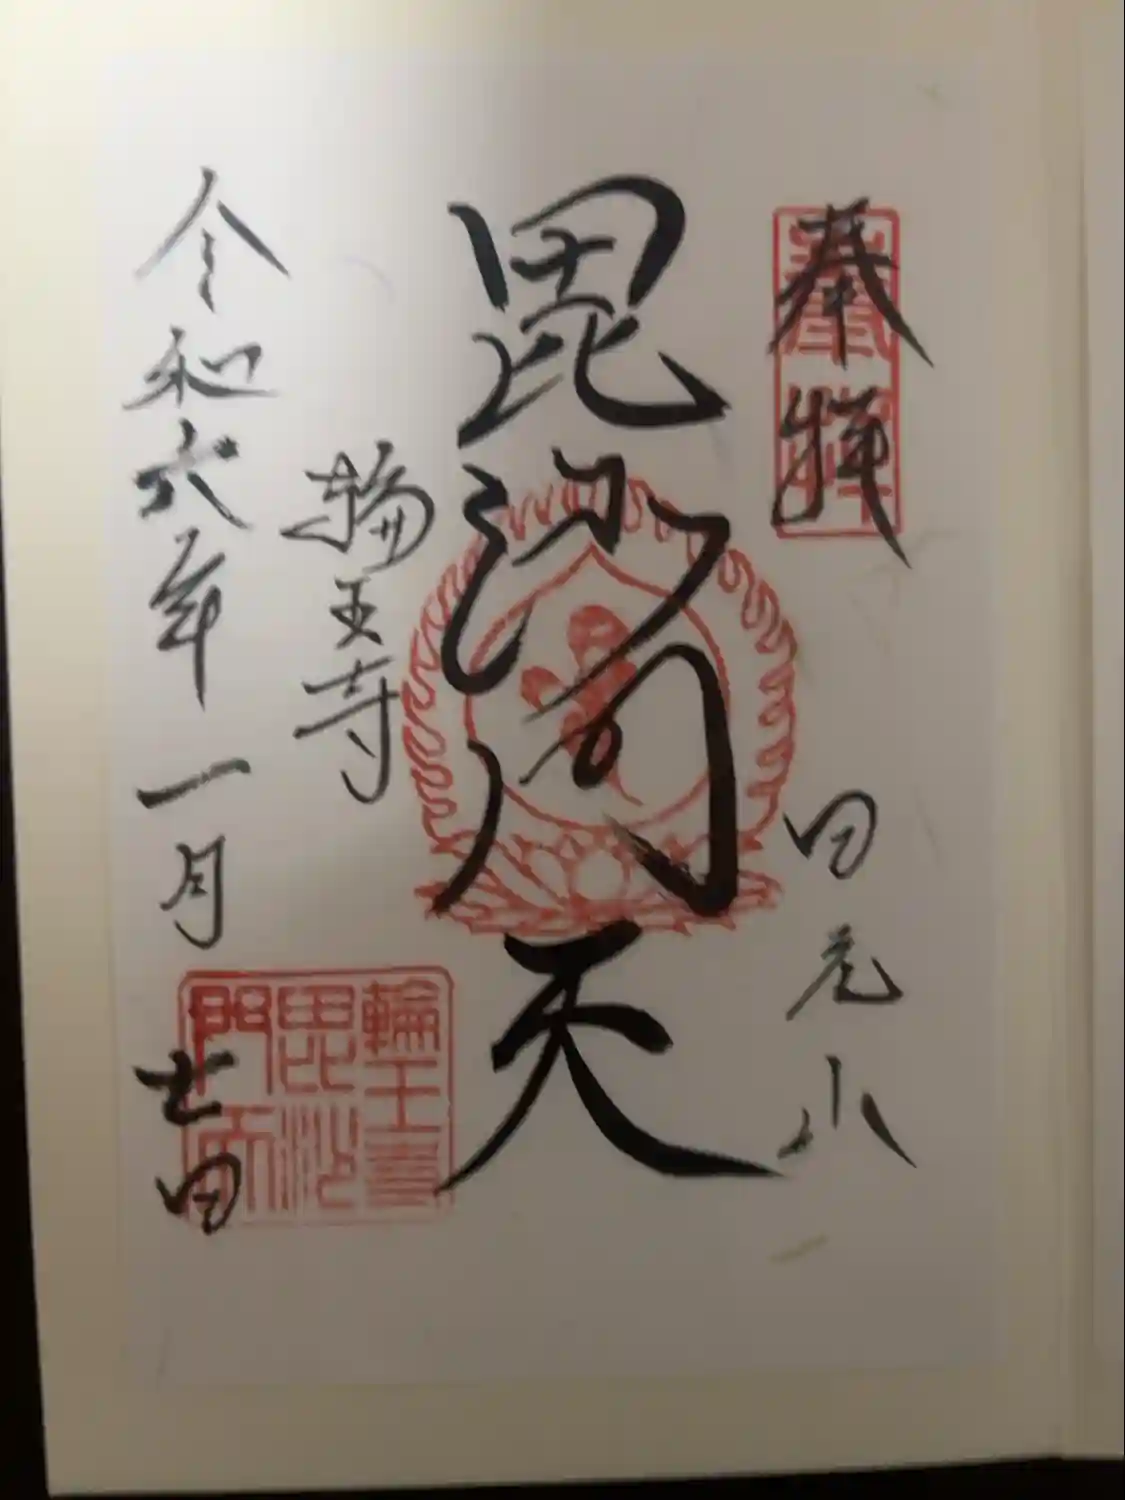 奉拝
日光山
毘沙門天
輪王寺
令和六年一月廿日
奉拝
輪王寺
毘沙
門天